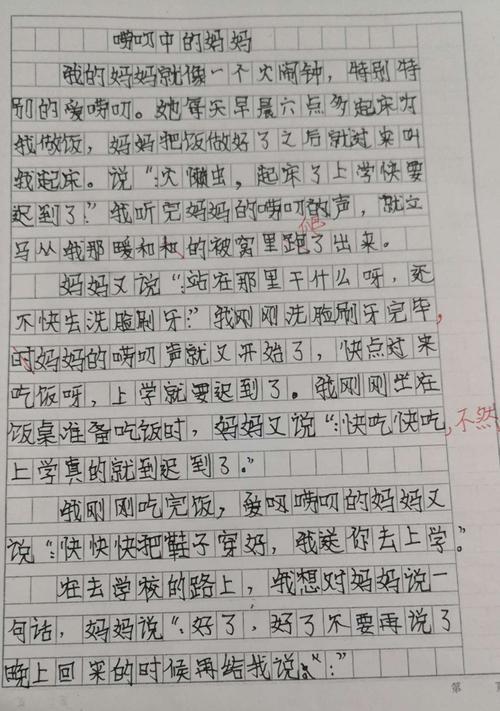 唠叨中的妈妈
我的妈妈就像一个火闹钟，特别特
别的爱唠叨。她每天早晨六点多起床为
我做饭，妈妈把饭做好了之后就过来叫
我起床。说“：火懒虫，起床了上学快要
迟到了！”我听完妈妈的唠叨的声，就立
马从我那暖和和的被窝里跑了出来。
妈妈又说“：站在那里干什么呀，还
不快去洗脸刷牙？”我刚刚洗脸刷牙完毕，
时妈妈的唠叨声就又开始了，快点过来
吃饭呀，上学就要迟到了。我刚刚坐在
饭桌准备吃饭时，妈妈又说“：快吃快吃，不然
上学真的就到迟到了。”
我刚刚吃完饭，爱叨唠叨的妈妈又
说“：快快快把鞋子穿好，我送你去上学。”
在去学校的路上，我想对妈妈说一
句话，妈妈说“：好了，好了不要再说了
晚上回来的时候再给我说。“：”
第 页